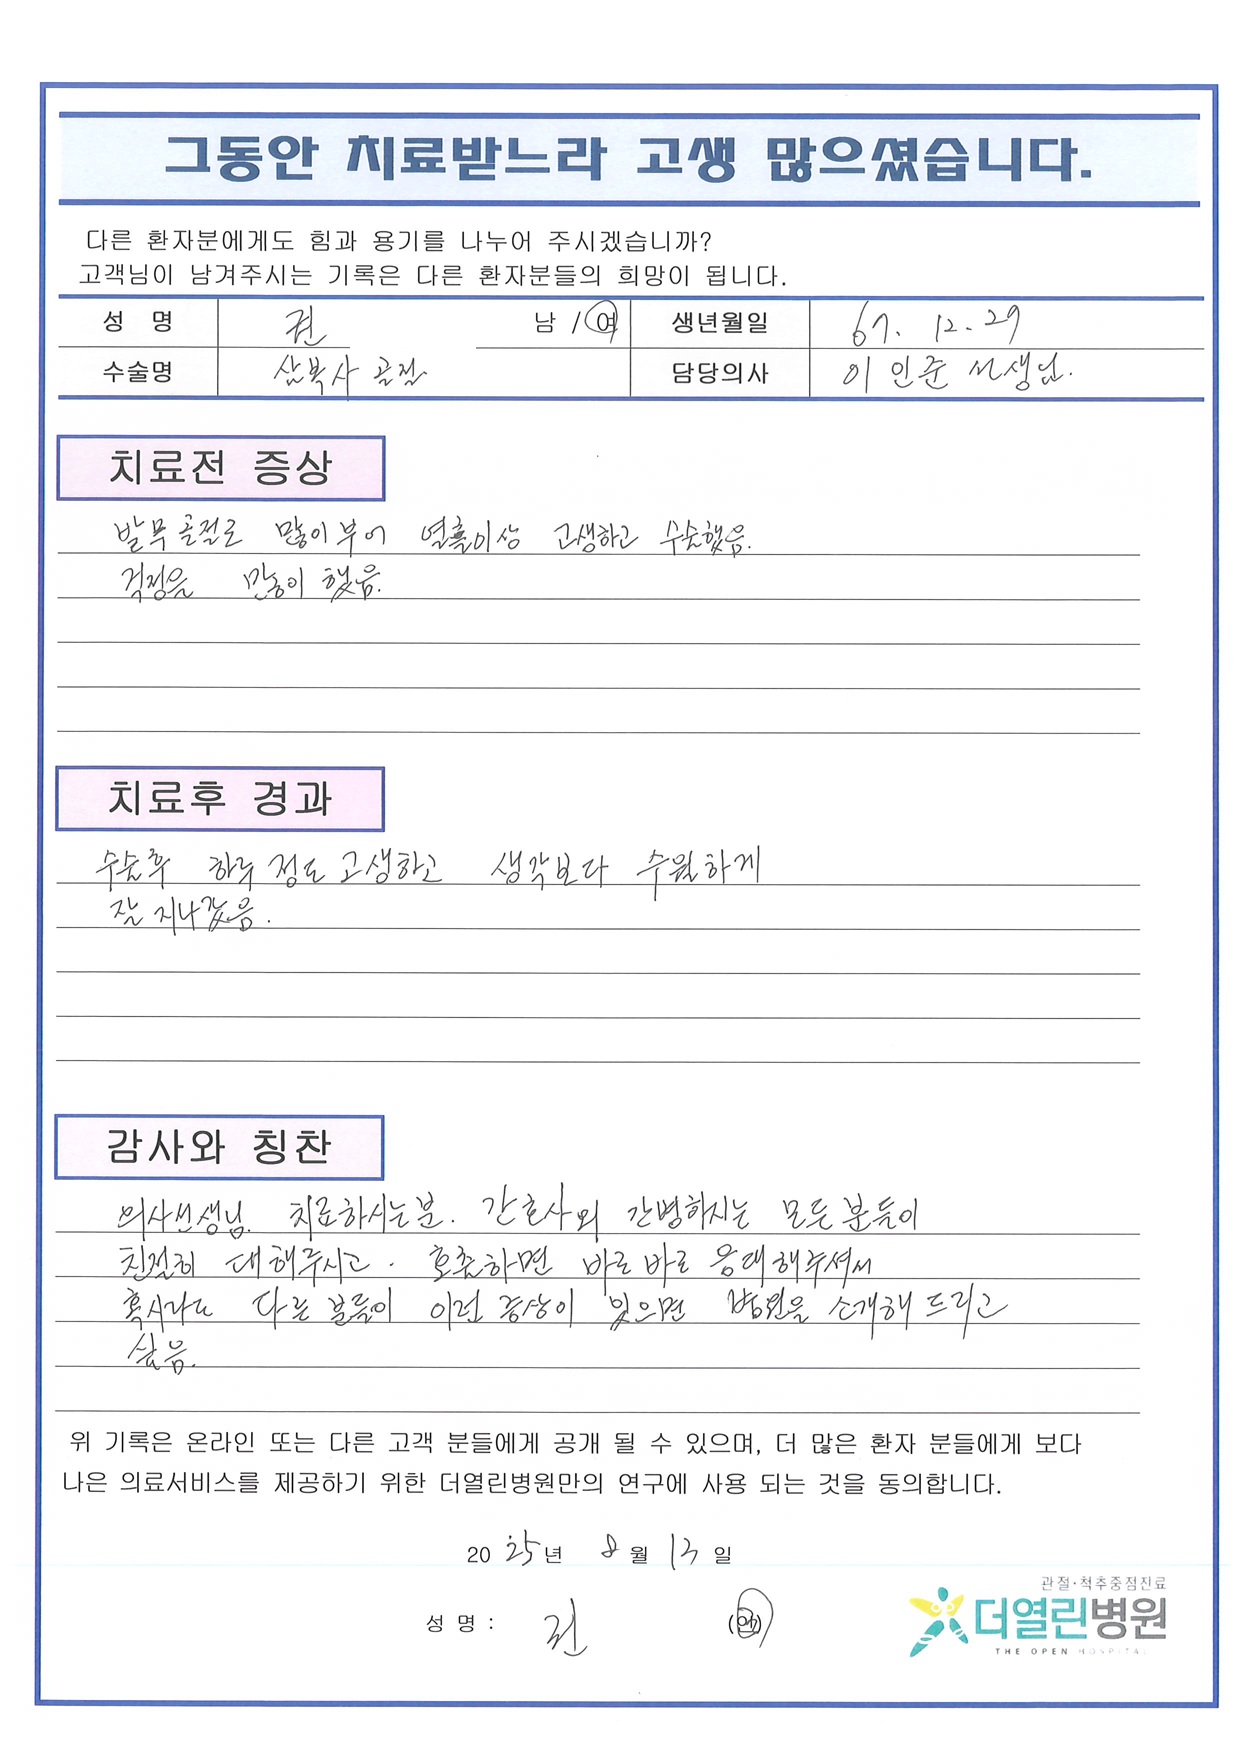 그동안 치료받느라 고생 많으셨습니다.
다른 환자분에게도 힘과 용기를 나누어 주시겠습니까?
고객님이 남겨주시는 기록은 다른 환자분들의 희망이 됩니다.
성 명 권 남 / 여 생년월일 67. 12. 29
수술명 삼복사 골절 담당의사 이인준 선생님.
치료전 증상
발목 골절로 많이 부어 열흘이상 고생하고 수술했음.
걱정을 많이 했음.
치료후 경과
수술후 하루 정도 고생하고 생각보다 수월하게
잘 지나갔음.
감사와 칭찬
의사선생님. 치료하시는분. 간호사외 간병하시는 모든 분들이
친절히 대해주시고. 호출하면 바로바로 응대해주셔서
혹시라도 다른 분들이 이런 증상이 있으면 병원을 소개해 드리고
싶음.
위 기록은 온라인 또는 다른 고객 분들에게 공개 될 수 있으며, 더 많은 환자 분들에게 보다
나은 의료서비스를 제공하기 위한 더열린병원만의 연구에 사용 되는 것을 동의합니다.
20 25년 8월 13일
성 명 : 권 (인)
관절·척추중점진료
더열린병원
THE OPEN HOSPITAL